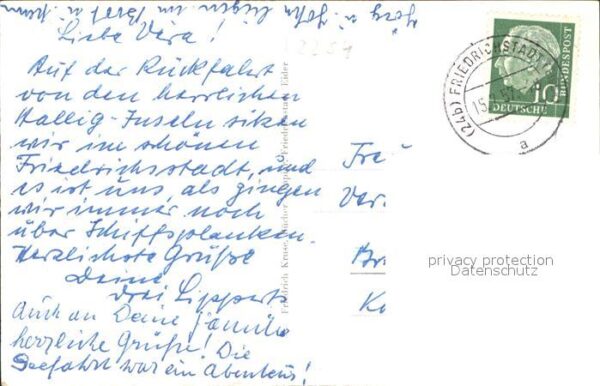 Liebe Vera!
Auf der Rückfahrt
von den herrlichen
Hallig-Inseln sitzen
wir im schönen
Friedrichsstadt, und
es ist uns, als gingen
wir immer noch
über Schiffsplanken.
Herzlichste Grüße
Deine
drei Lipperts
Auch an Deine Familie
herzliche Grüße! Die
Seefahrt war ein Abenteuer!
Friedrich Kruse, Bücher Friedrichstadt Eider
2251
(24b) FRIEDRICHSTADT
15.
a
10
DEUTSCHE
BUNDESPOST
Frau
Ver
Br
privacy protection
Datenschutz